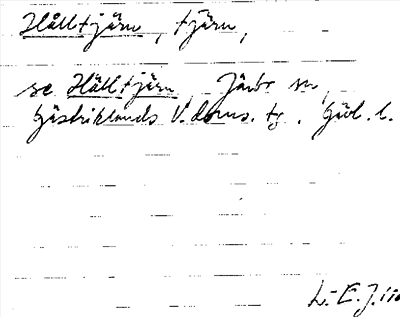 Hålltjärn, tjärn,
se Hälltjärn, Järbo sn,
Gästriklands V. doms. tg. Gävl. l.
L-E.J.